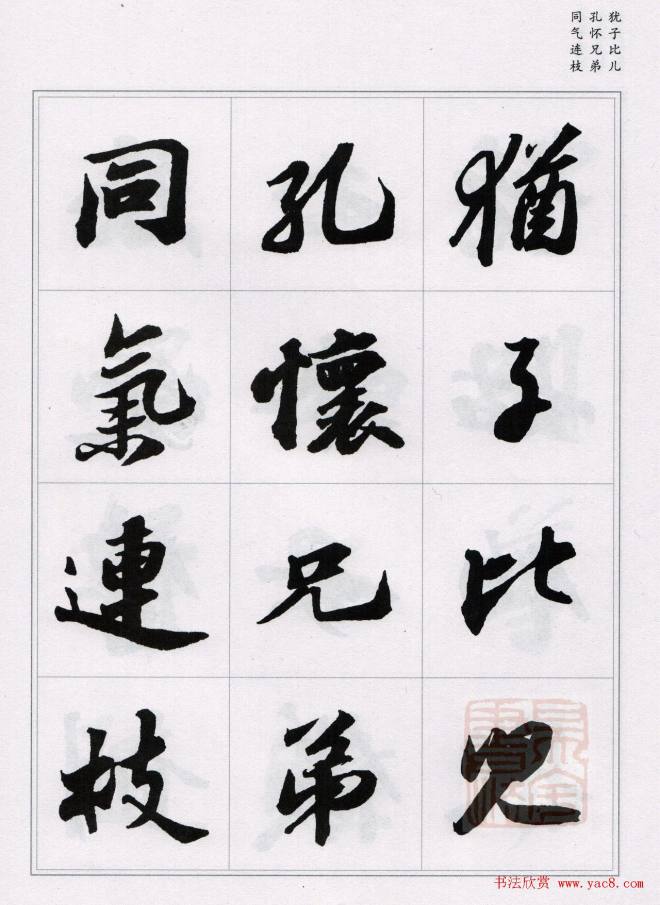 犹子比儿
孔怀兄弟
同气连枝
猶子比兒
孔懷兄弟
同氣連枝
书法欣赏 www.yac8.com